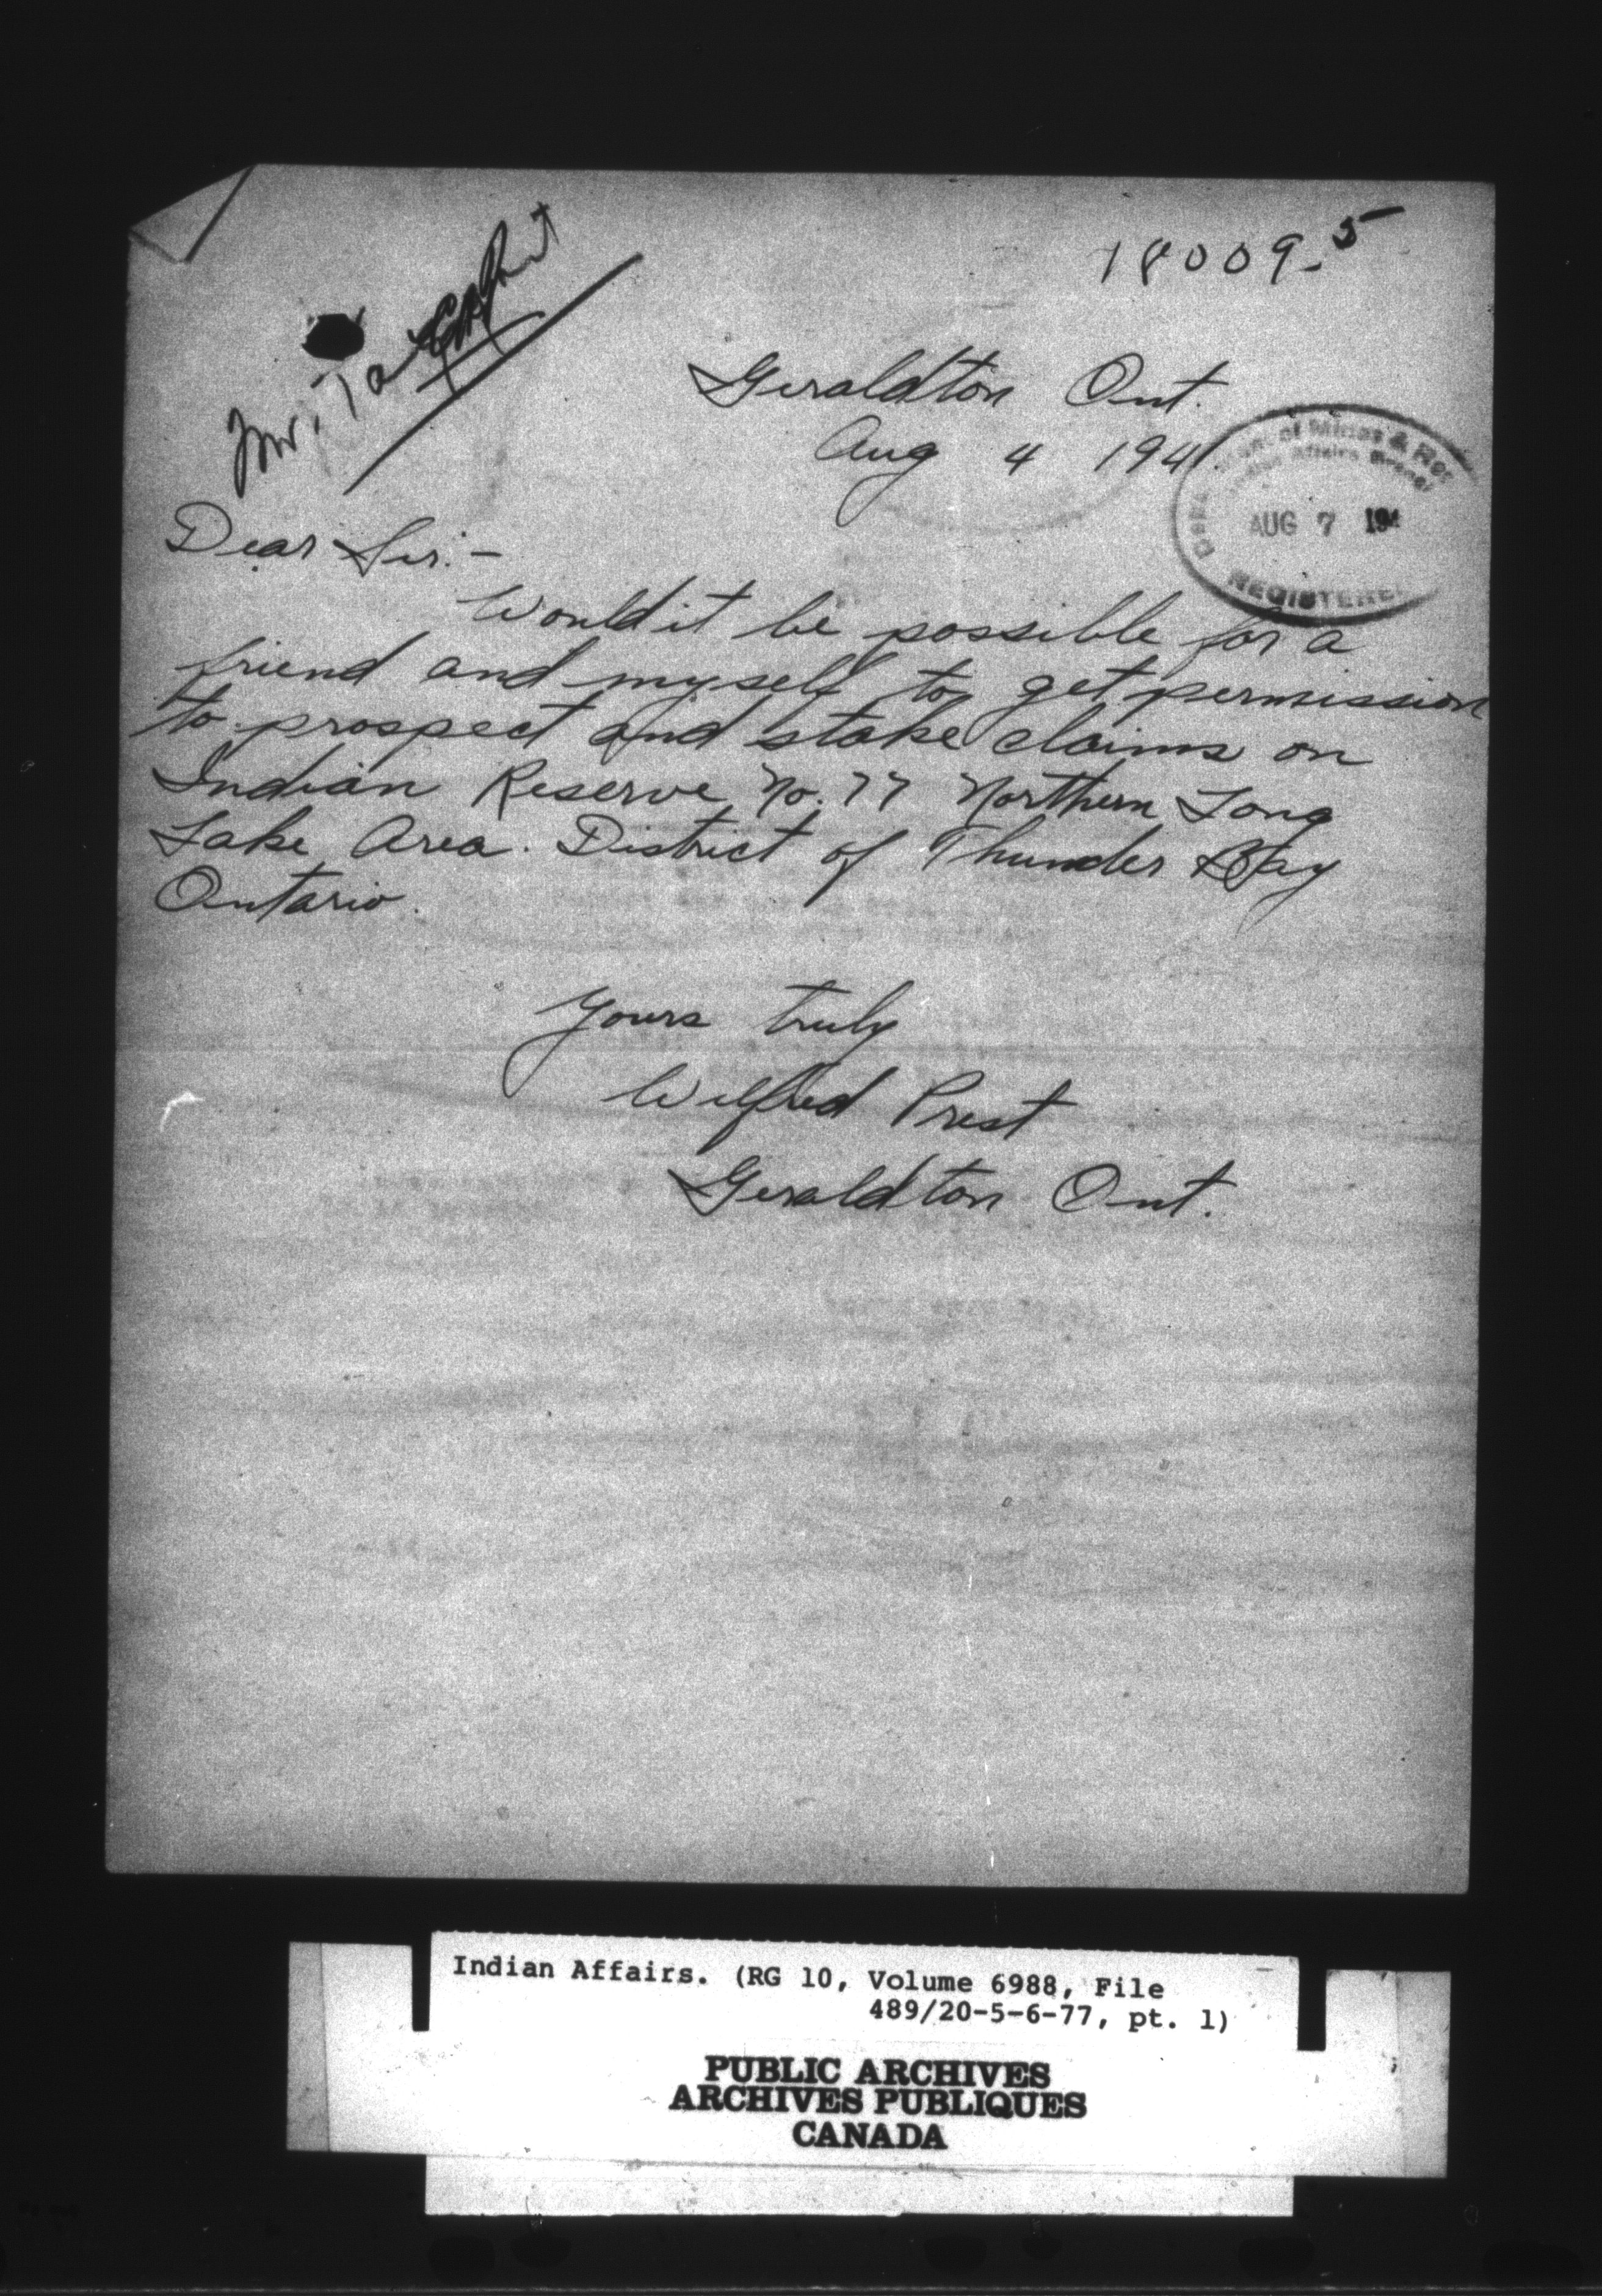 18009-5
Mr.
Geraldton Ont.
Aug 4 1941.
Department of Mines & Res
Indian Affairs Branch
AUG 7 194
REGISTERED
Dear Sir:-
Would it be possible for a
friend and myself to get permission
to prospect and stake claims on
Indian Reserve No. 77 Northern Long
Lake Area. District of Thunder Bay
Ontario.
Yours truly
Wilfred Prest
Geraldton Ont.
Indian Affairs. (RG 10, Volume 6988, File
489/20-5-6-77, pt. 1)
PUBLIC ARCHIVES
ARCHIVES PUBLIQUES
CANADA